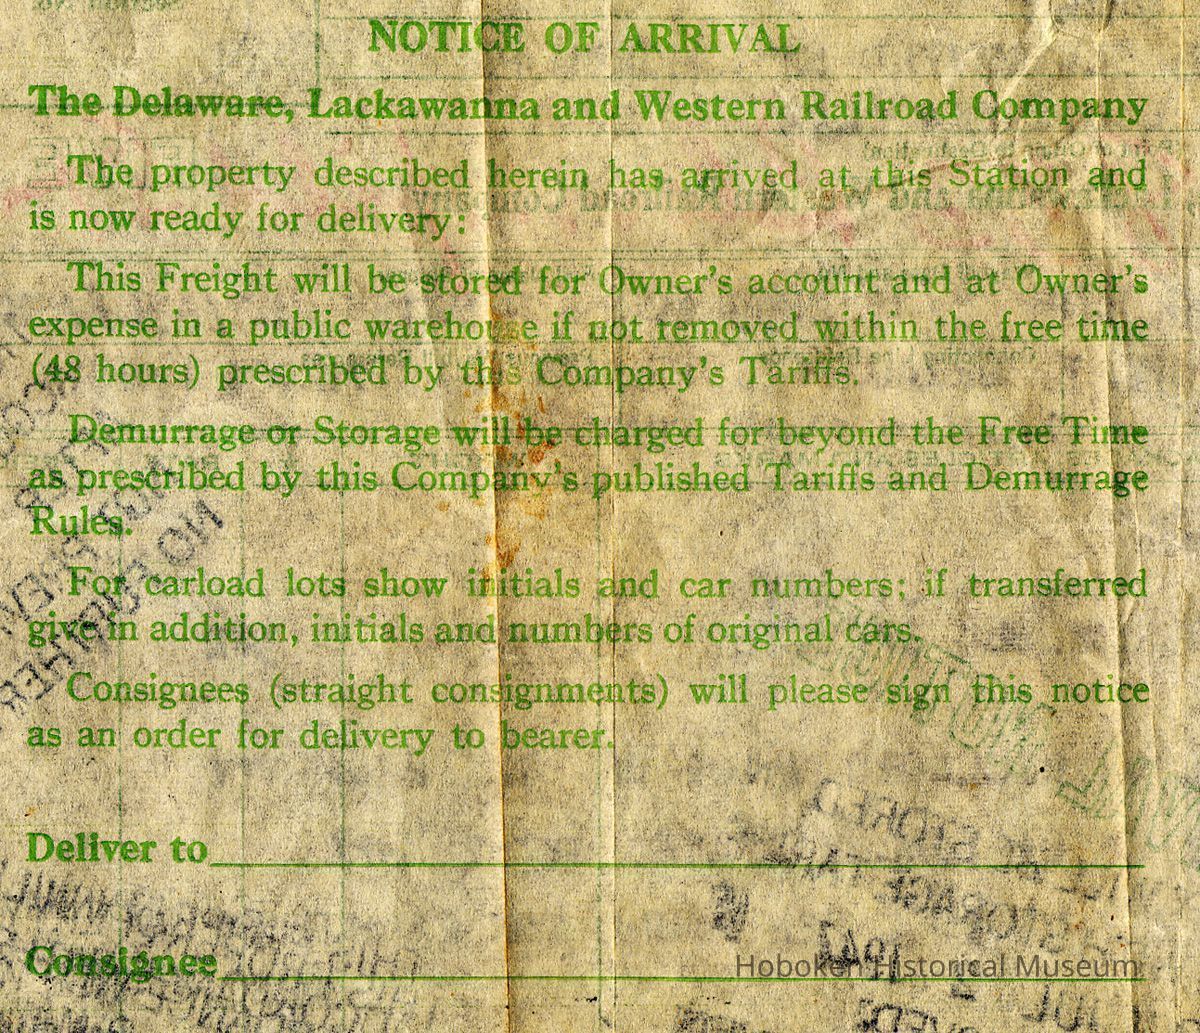 NOTICE OF ARRIVAL
The Delaware, Lackawanna and Western Railroad Company
The property described herein has arrived at this Station and
is now ready for delivery:
This Freight will be stored for Owner's account and at Owner's
expense in a public warehouse if not removed within the free time
(48 hours) prescribed by this Company's Tariffs.
Demurrage or Storage will be charged for beyond the Free Time
as prescribed by this Company's published Tariffs and Demurrage
Rules.
For carload lots show initials and car numbers; if transferred
give in addition, initials and numbers of original cars.
Consignees (straight consignments) will please sign this notice
as an order for delivery to bearer.
Deliver to
Consignee
Hoboken Historical Museum